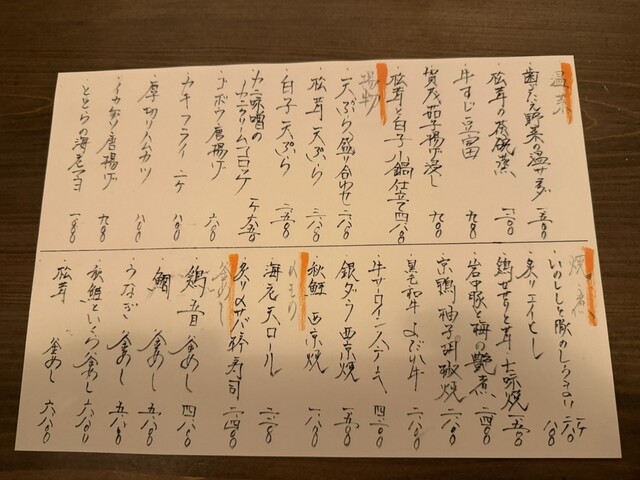 温菜
歯ごたえ野菜の温サラダ 一五〇〇
松茸の茶碗蒸
牛すじ豆富 九八〇
賀茂茄子揚げ浸し 九八〇
松茸と白子小鍋仕立て 四八〇〇
揚物
天ぷら盛り合わせ 一八〇〇
松茸天ぷら 二八〇〇
白子天ぷら 二五〇〇
カニ味噌のカニクリームコロッケ 一ケ 七五〇
ゴボウ唐揚げ 六八〇
カキフライ 二ケ 八八〇
厚切ハムカツ 八八〇
イカゲソ唐揚げ 九八〇
海老マヨ 一八〇〇
焼・煮
炙りエイヒレ 八八〇
鶏せせりと茸・七味焼 一五〇〇
岩中豚と梅の艶煮 二四〇〇
京鴨柚子胡椒焼 二六〇〇
黒毛和牛よだれ牛 二八〇〇
牛サーロインステーキ 四二〇〇
銀ダラ西京焼 二五〇〇
秋鮭西京焼 一八〇〇
のりもの
海老天ロール 二二〇〇
炙りサバ棒寿司 二四〇〇
釜めし
鶏五目釜めし 四二〇〇
鯛釜めし 五二〇〇
うなぎ釜めし 五八〇〇
秋鮭といくら釜めし 六八〇〇
松茸釜めし 六八〇〇